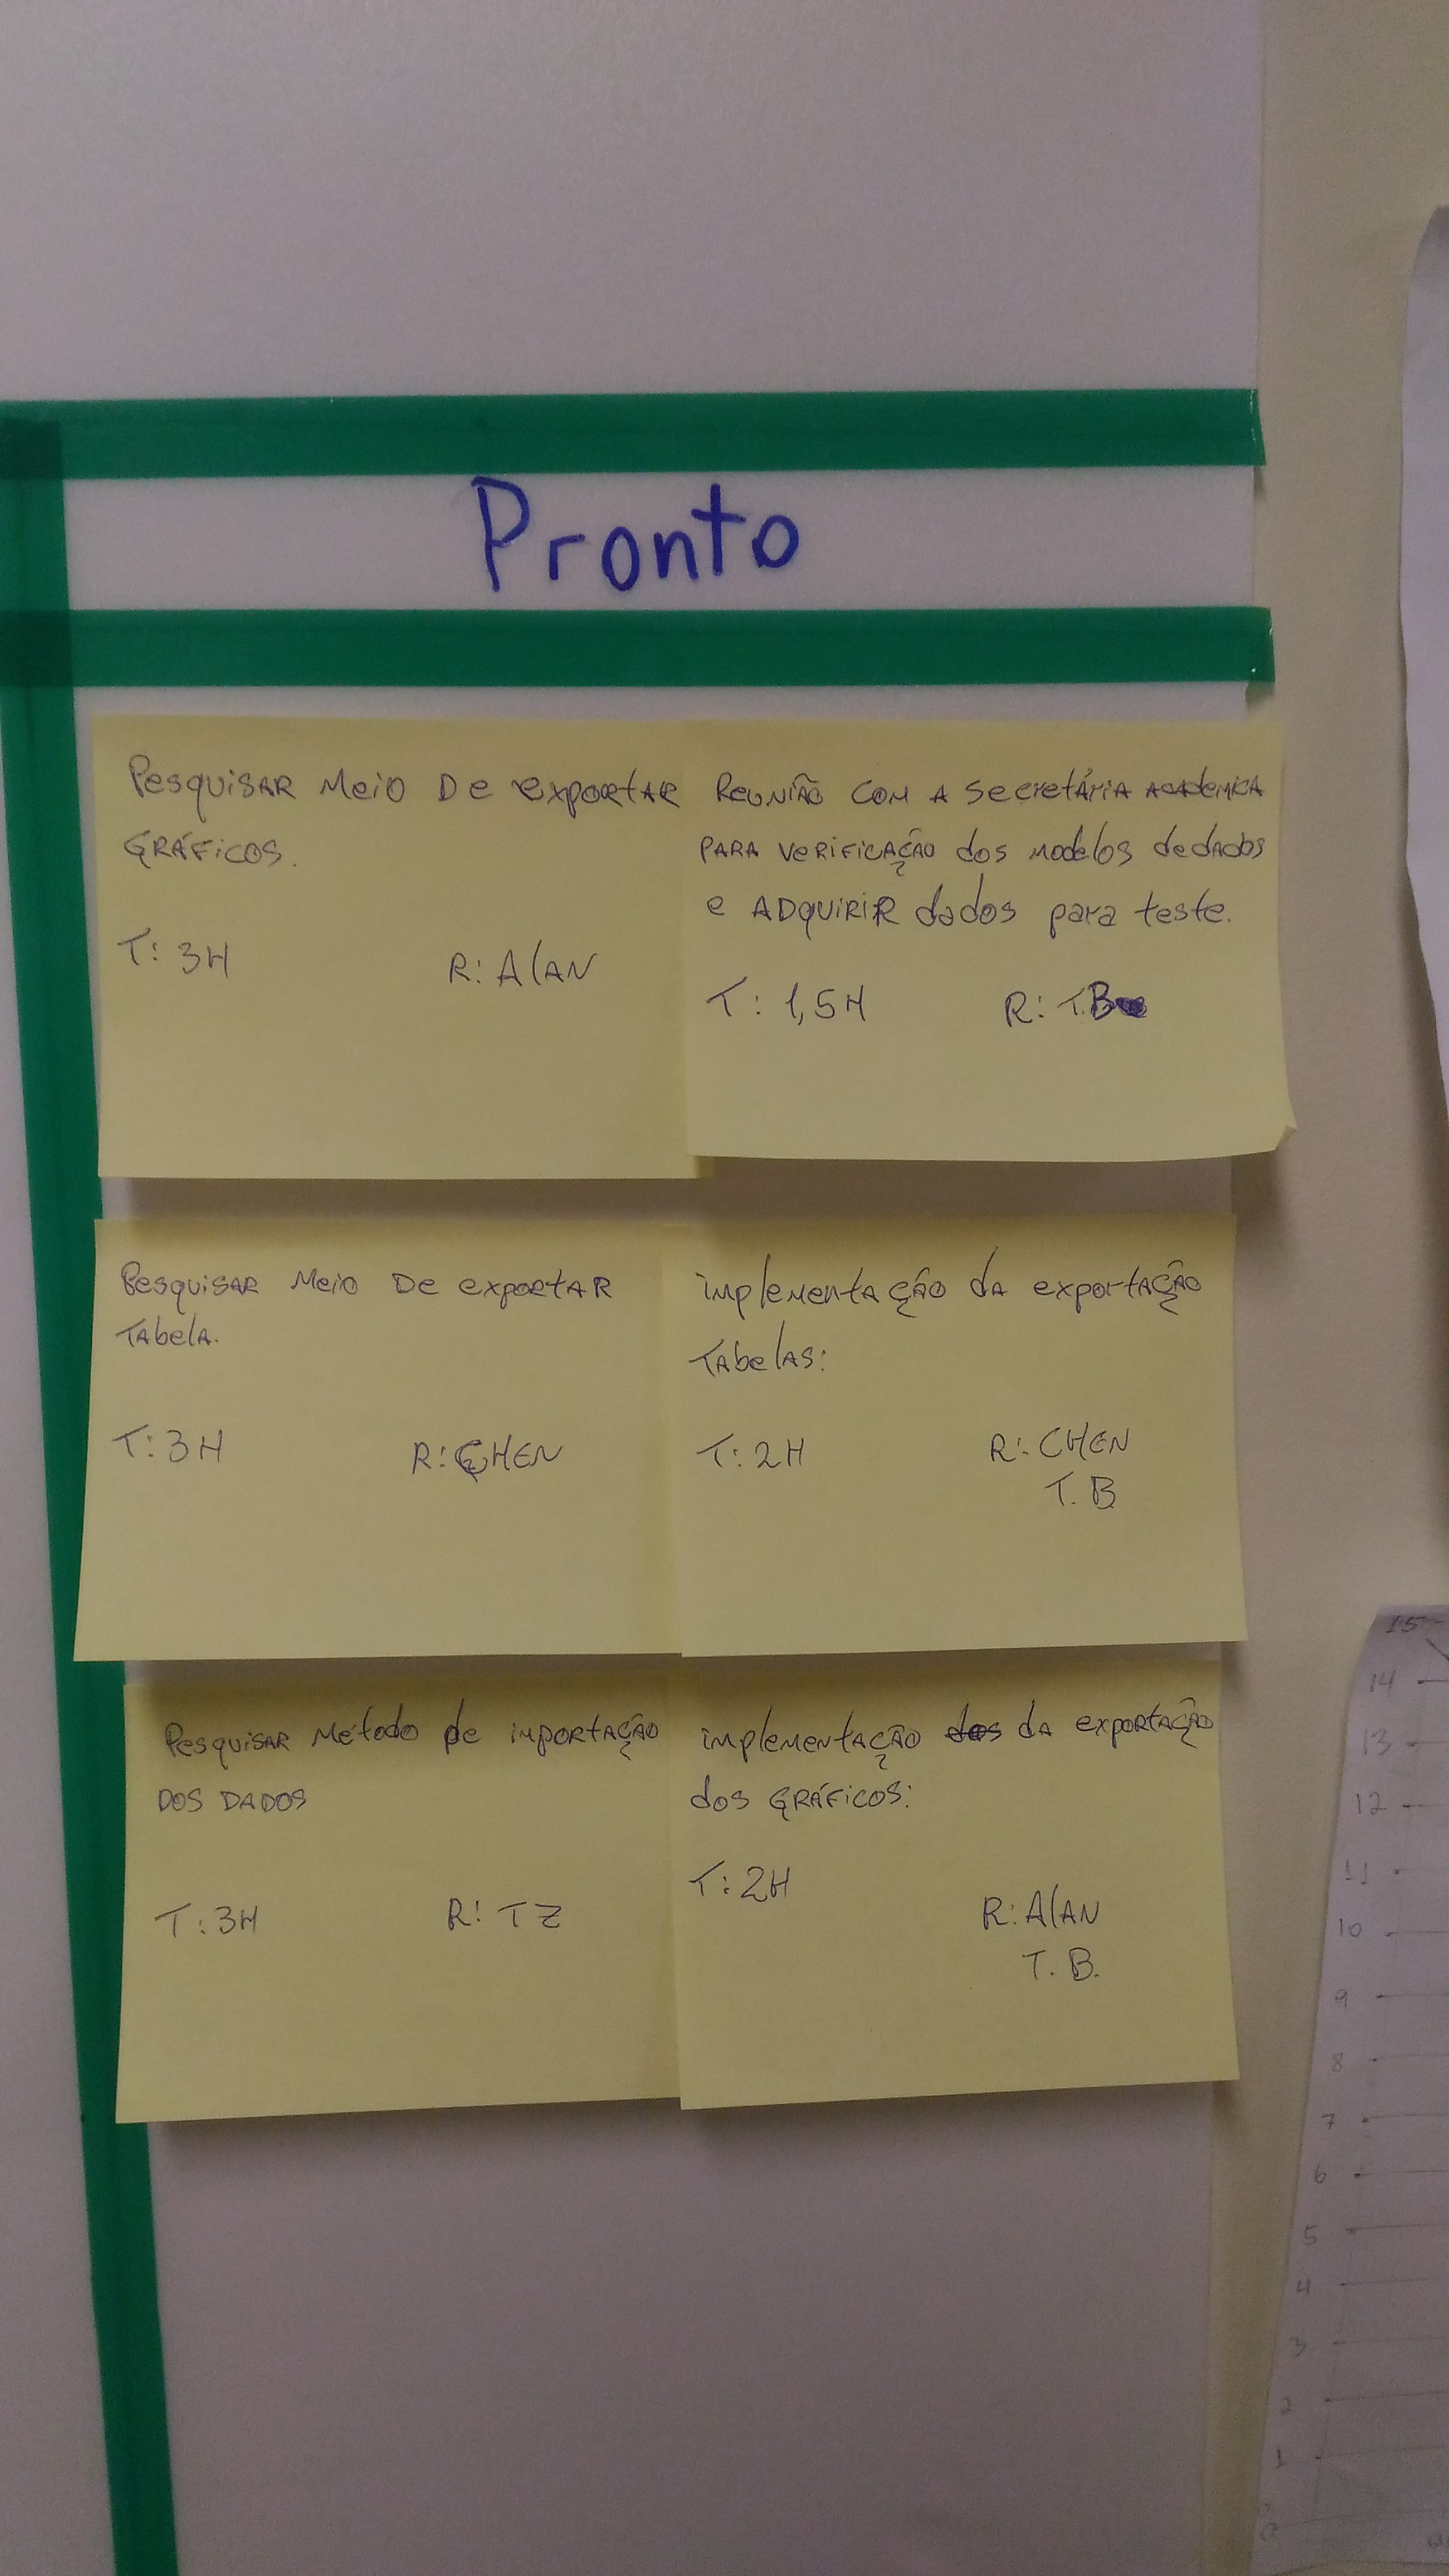 Pronto
Pesquisar Meio De exportar
Gráficos.
T: 3H
R: Alan
Reunião com a secretária academica
para verificação dos modelos de dados
e adquirir dados para teste.
T: 1,5H
R: T.B
Pesquisar Meio De exportar
Tabela.
T: 3H
R: CHEN
implementação da exportação
Tabelas:
T: 2H
R: CHEN
T. B.
Pesquisar Método de importação
DOS DADOS
T: 3H
R: TZ
implementação dos da exportação
dos gráficos:
T: 2H
R: Alan
T. B.
15
14
13
12
11
10
9
8
7
6
5
4
3
2
1
0